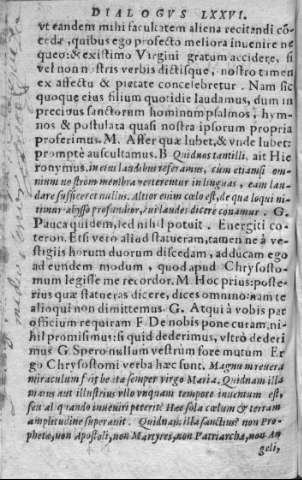 DIALOGVS LXXVI.
vt eandem mihi facultatem aliena recitandi cõ-
cedã, quibus ego profecto meliora inuenire ne
queo: & existimo Virgini gratum accidere, si
vel non nostris verbis dictisque, nostro tamen
ex affectu & pietate concelebretur. Nam sic
quoque eius filium quotidie laudamus, dum in
precibus sanctorum hominum psalmos, hym-
nos & postulata quasi nostra ipsorum propria
proferimus. M. Affer quæ lubet, & vnde lubet:
promptè auscultamus. B Quid nos tantilli, ait Hie
ronymus, in eius laudibus referamus, cùm etiamsi om-
nium nostrûm membra verterentur in linguas, eam lau-
dare sufficeret nullus. Altior enim cœlo est, de qua loqui ni-
timur: abysso profundior, cui laudes dicere conamur. G.
Pauca quidem, sed nihil potuit. Energiti co-
teron. Etsi verò aliud statueram, tamen ne à ve-
stigiis horum duorum discedam, adducam ego
ad eundem modum, quod apud Chrysosto-
mum legisse me recordor. M. Hoc prius: poste-
rius quæ statueras dicere, dices omnino: nam te
alioqui non dimittemus. G. Atqui à vobis par
officium requiram F. De nobis pone curam, ni-
hil promisimus: si quid dederimus, vltrò dederi-
mus G Spero nullum vestrûm fore mutum. Er
go Chrysostomi verba hæc sunt. Magnum reuera
miraculum fuit beata semper virgo Maria. Quidnam illa
maius aut illustrius vllo vnquam tempore inuentum est,
seu aliquando inueniri poterit? Hæc sola cœlum & terram
amplitudine superauit. Quidnam illa sanctius? non Pro-
phetæ, non Apostoli, non Martyres, non Patriarchæ, non An-
geli,